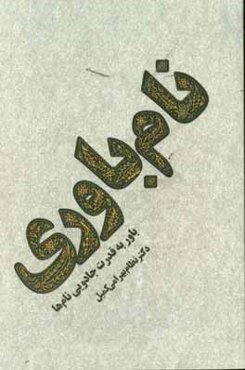 نام‌باوری
باور به قدرت جادویی نام‌ها
دکتر نظام بهرامی کمیل